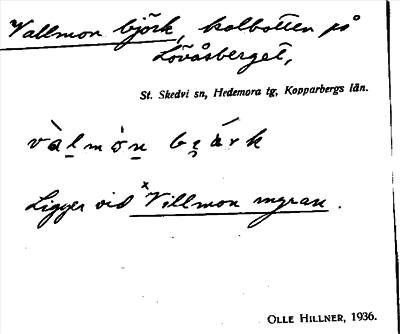 Vallmon björk, kolbotten på
Lövåsberget,
St. Skedvi sn, Hedemora tg, Kopparbergs län.
Ligger vid ˣVillmon myran.
OLLE HILLNER, 1936.